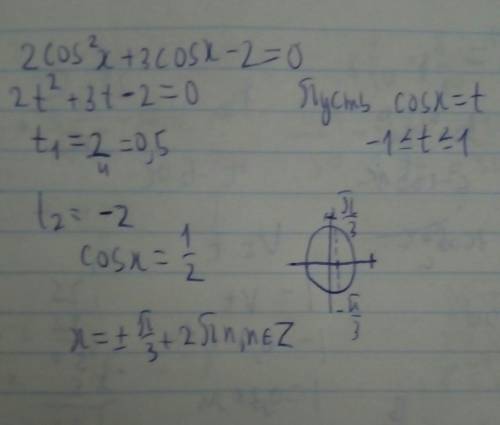 2cos²x+3cosx-2=0
2t²+3t-2=0 Пусть cosx=t
t₁=2/4=0,5 -1≤t≤1
t₂=-2
cosx=1/2
π/3
-π/3
x=±π/3+2πn, n∈Z